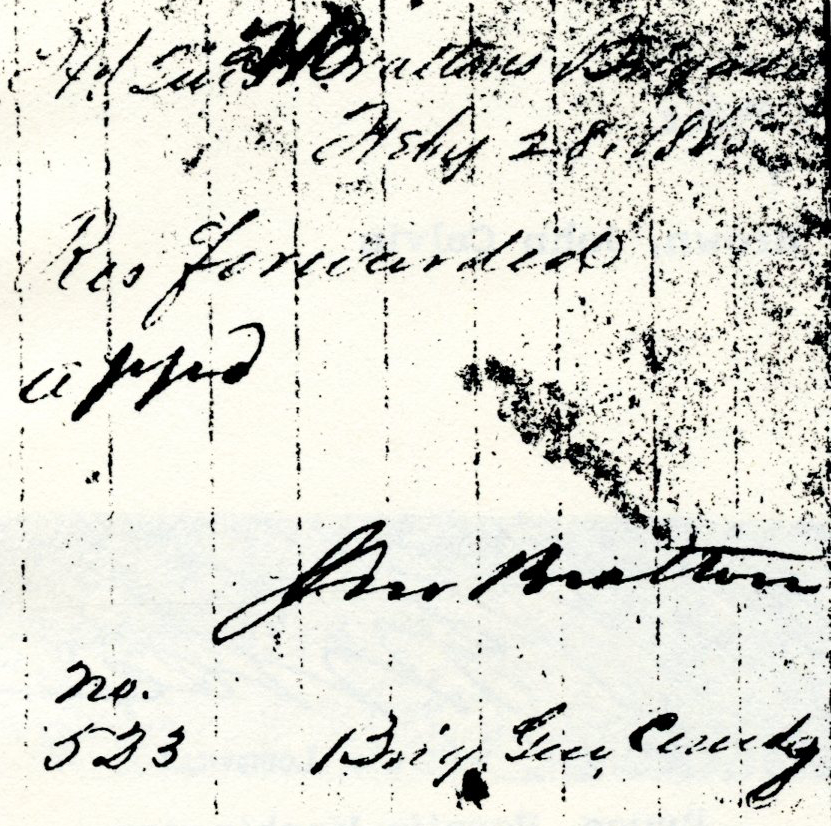 Hd Qurs Brattons Brigade
Feby 28, 1865
Res forwarded
appd
Jno Bratton
no.
523 Brig. Gen, Comdg